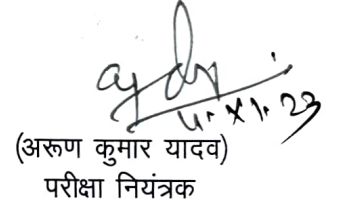 4.XI.23
(अरूण कुमार यादव)
परीक्षा नियंत्रक